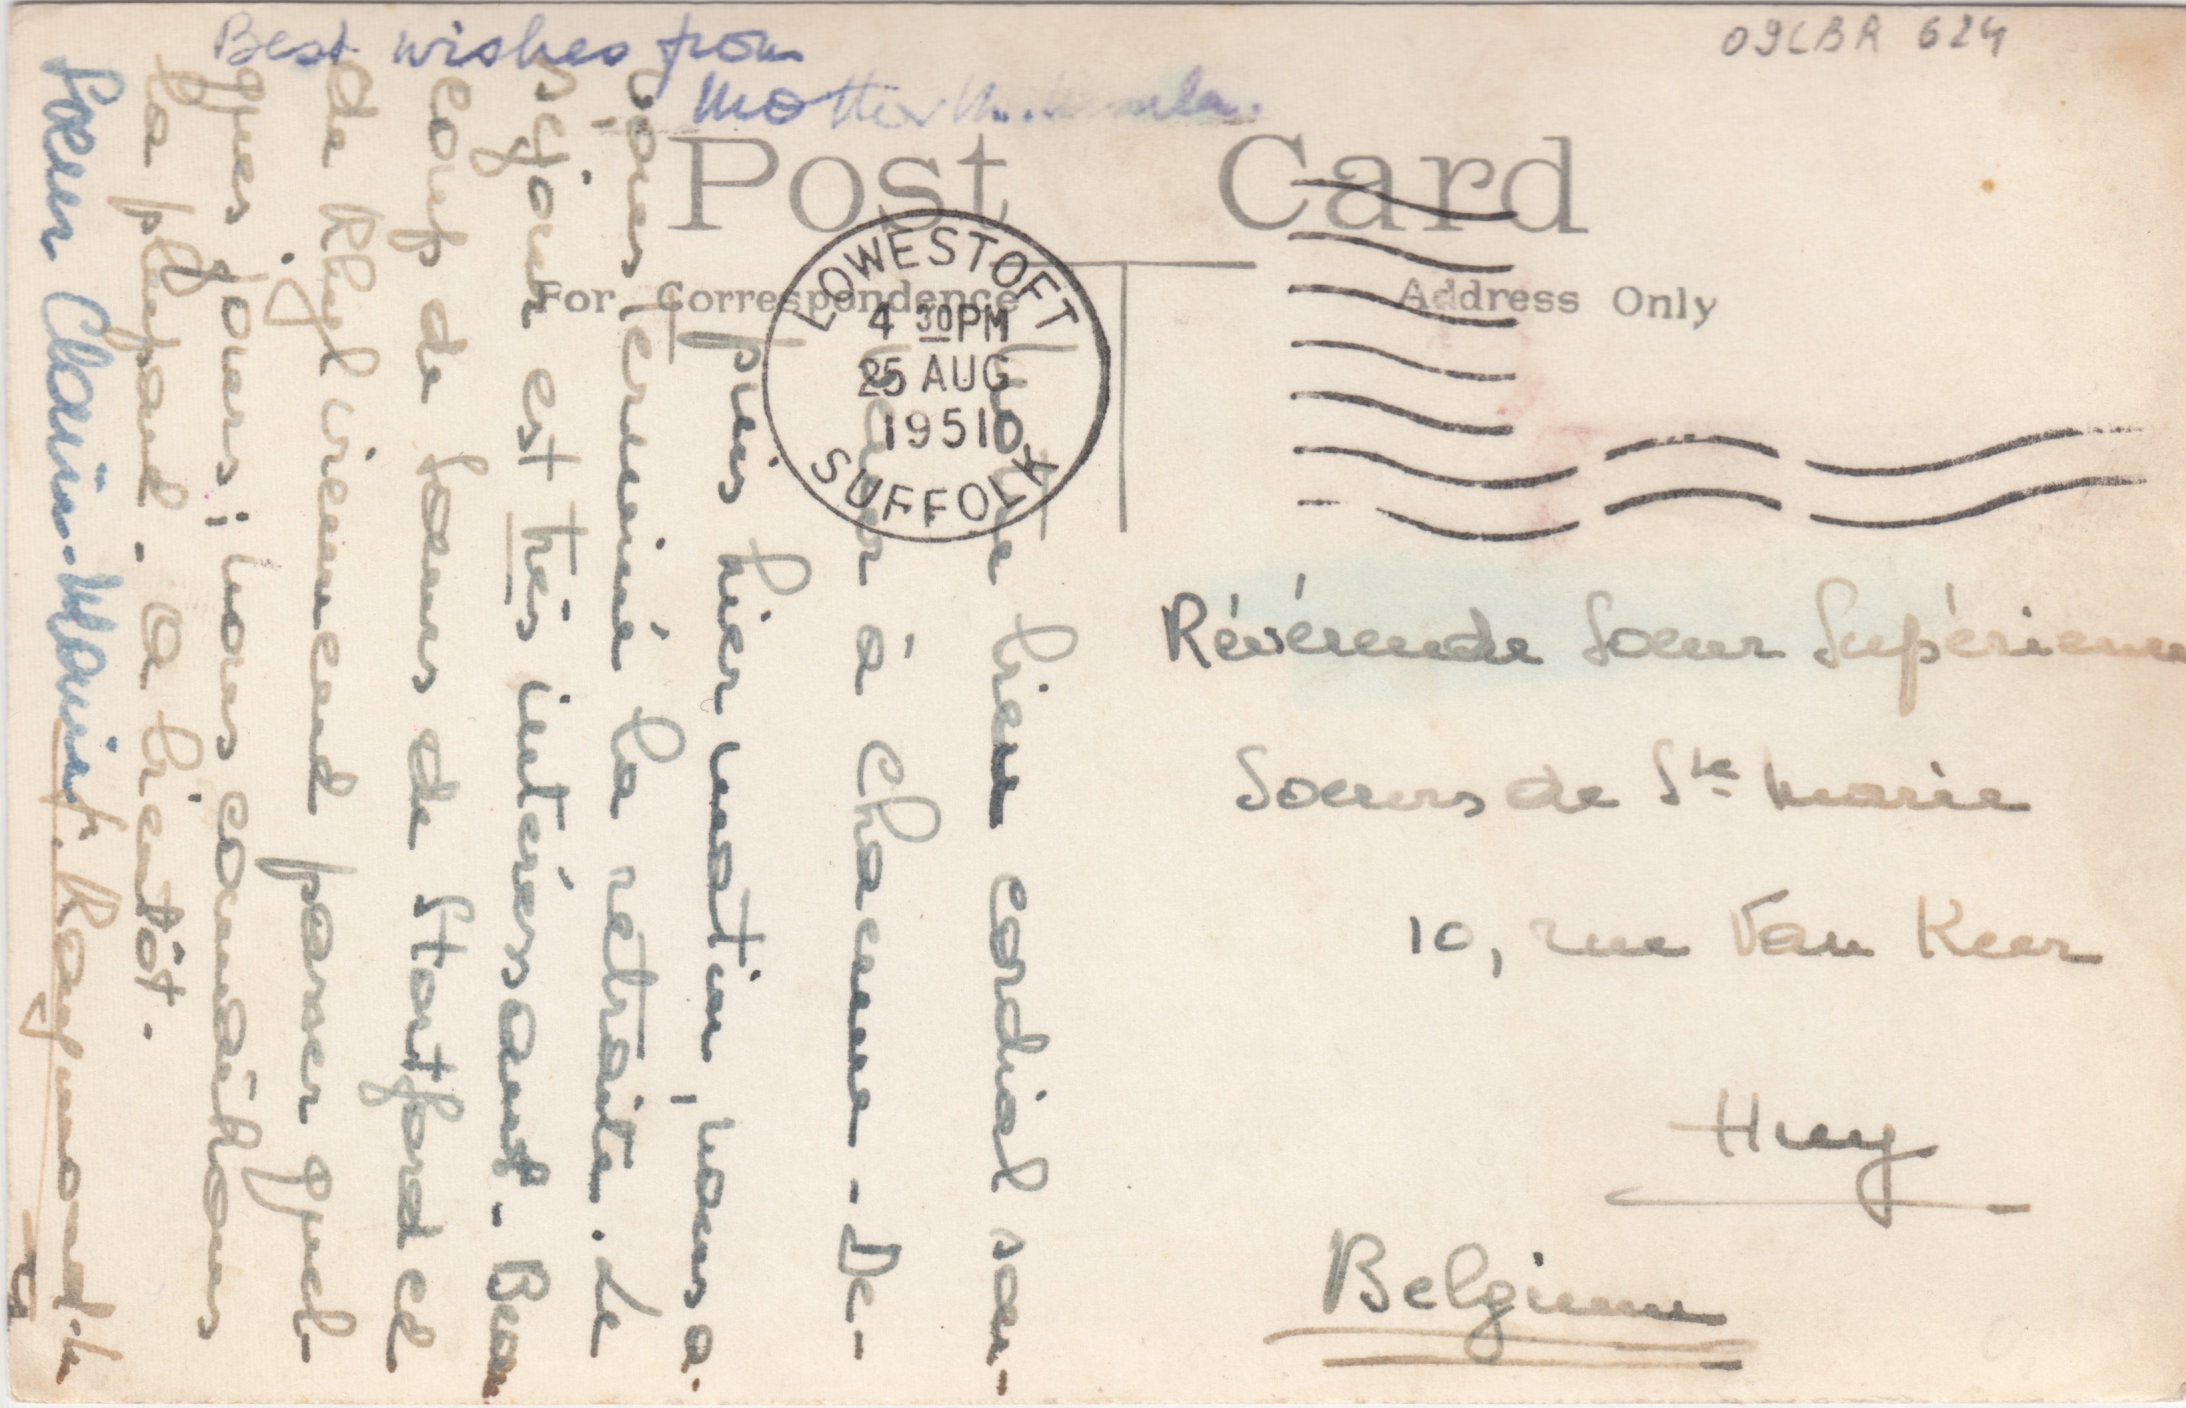 Best wishes from
Mother M.
09LBR 624
Post Card
For Correspondence
Address Only
LOWESTOFT
4 30PM
25 AUG
1951
SUFFOLK
Notre bien cordial sou-
venir à chacune - De-
puis hier matin, nous a-
vons terminé la retraite. Le
séjour est très intéressant - Beau
coup de Soeurs de Stortford et
de Rhyl viennent passer quel-
ques jours ; nous connaîtrons
la plupart - à bientôt.
Soeur Claire-Marie.
Révérende Soeur Supérieure
Soeurs de Ste Marie
10, rue Van Keer
Huy
Belgium